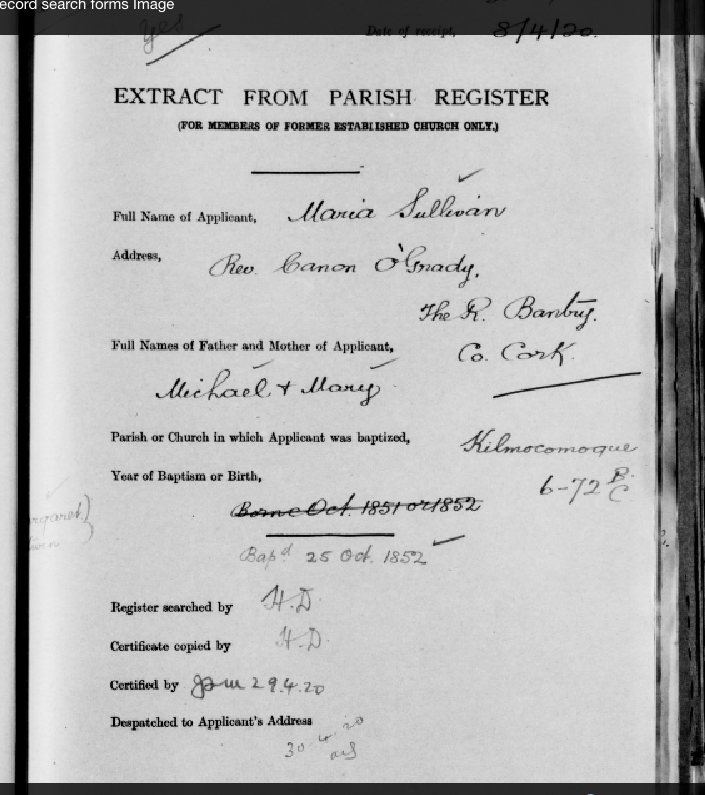 ecord search forms Image
yes
Date of receipt, 8/4/20.
EXTRACT FROM PARISH REGISTER
(FOR MEMBERS OF FORMER ESTABLISHED CHURCH ONLY.)
Full Name of Applicant, Maria Sullivan
Address, Rev. Canon O'Grady,
The R. Bantry.
Co. Cork.
Full Names of Father and Mother of Applicant,
Michael + Mary
Parish or Church in which Applicant was baptized, Kilmocomoque
Year of Baptism or Birth, 6-72 B C
Borne Oct. 1851 or 1852
Bapd 25 Oct. 1852
Register searched by H.D.
Certificate copied by H.D.
Certified by 29.4.20
Despatched to Applicant's Address
30